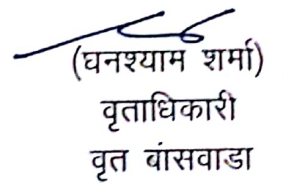 (घनश्याम शर्मा)
वृताधिकारी
वृत बांसवाडा